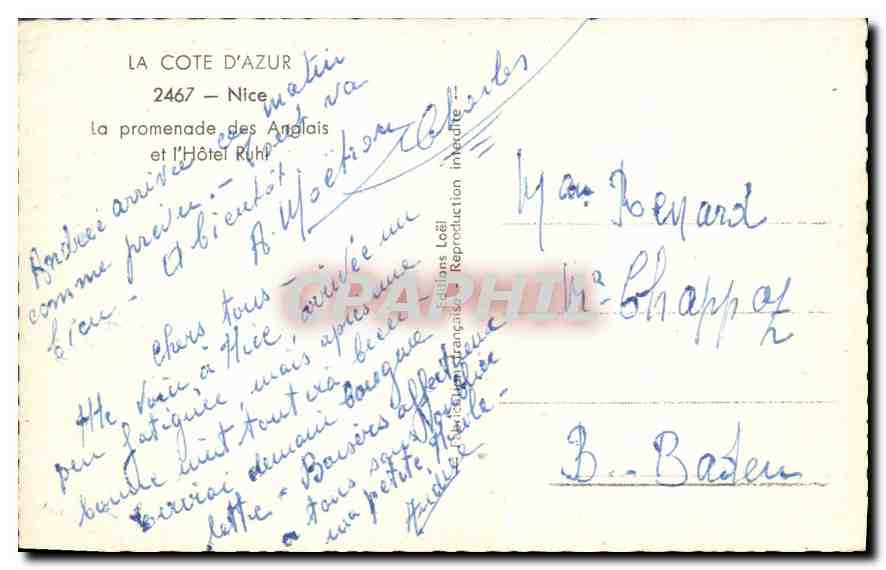 LA COTE D'AZUR
2467 — Nice
La promenade des Anglais
et l'Hôtel Ruhl
Andrée arrivée ce matin
comme prévu. — tout va
bien — A bientôt
A. Charles
Chers tous —
Me voici à Nice, arrivée un
peu fatiguée, mais après une
bonne nuit tout ira bien —
Ecrirai demain longue
lettre — Baisers affectueux
à tous sans oublier
ma petite
Andrée
Editions Loël
Fabrication française — Reproduction interdite —
CPAPHIL
Mme Renard
Mr Chappaz
B.-Baden